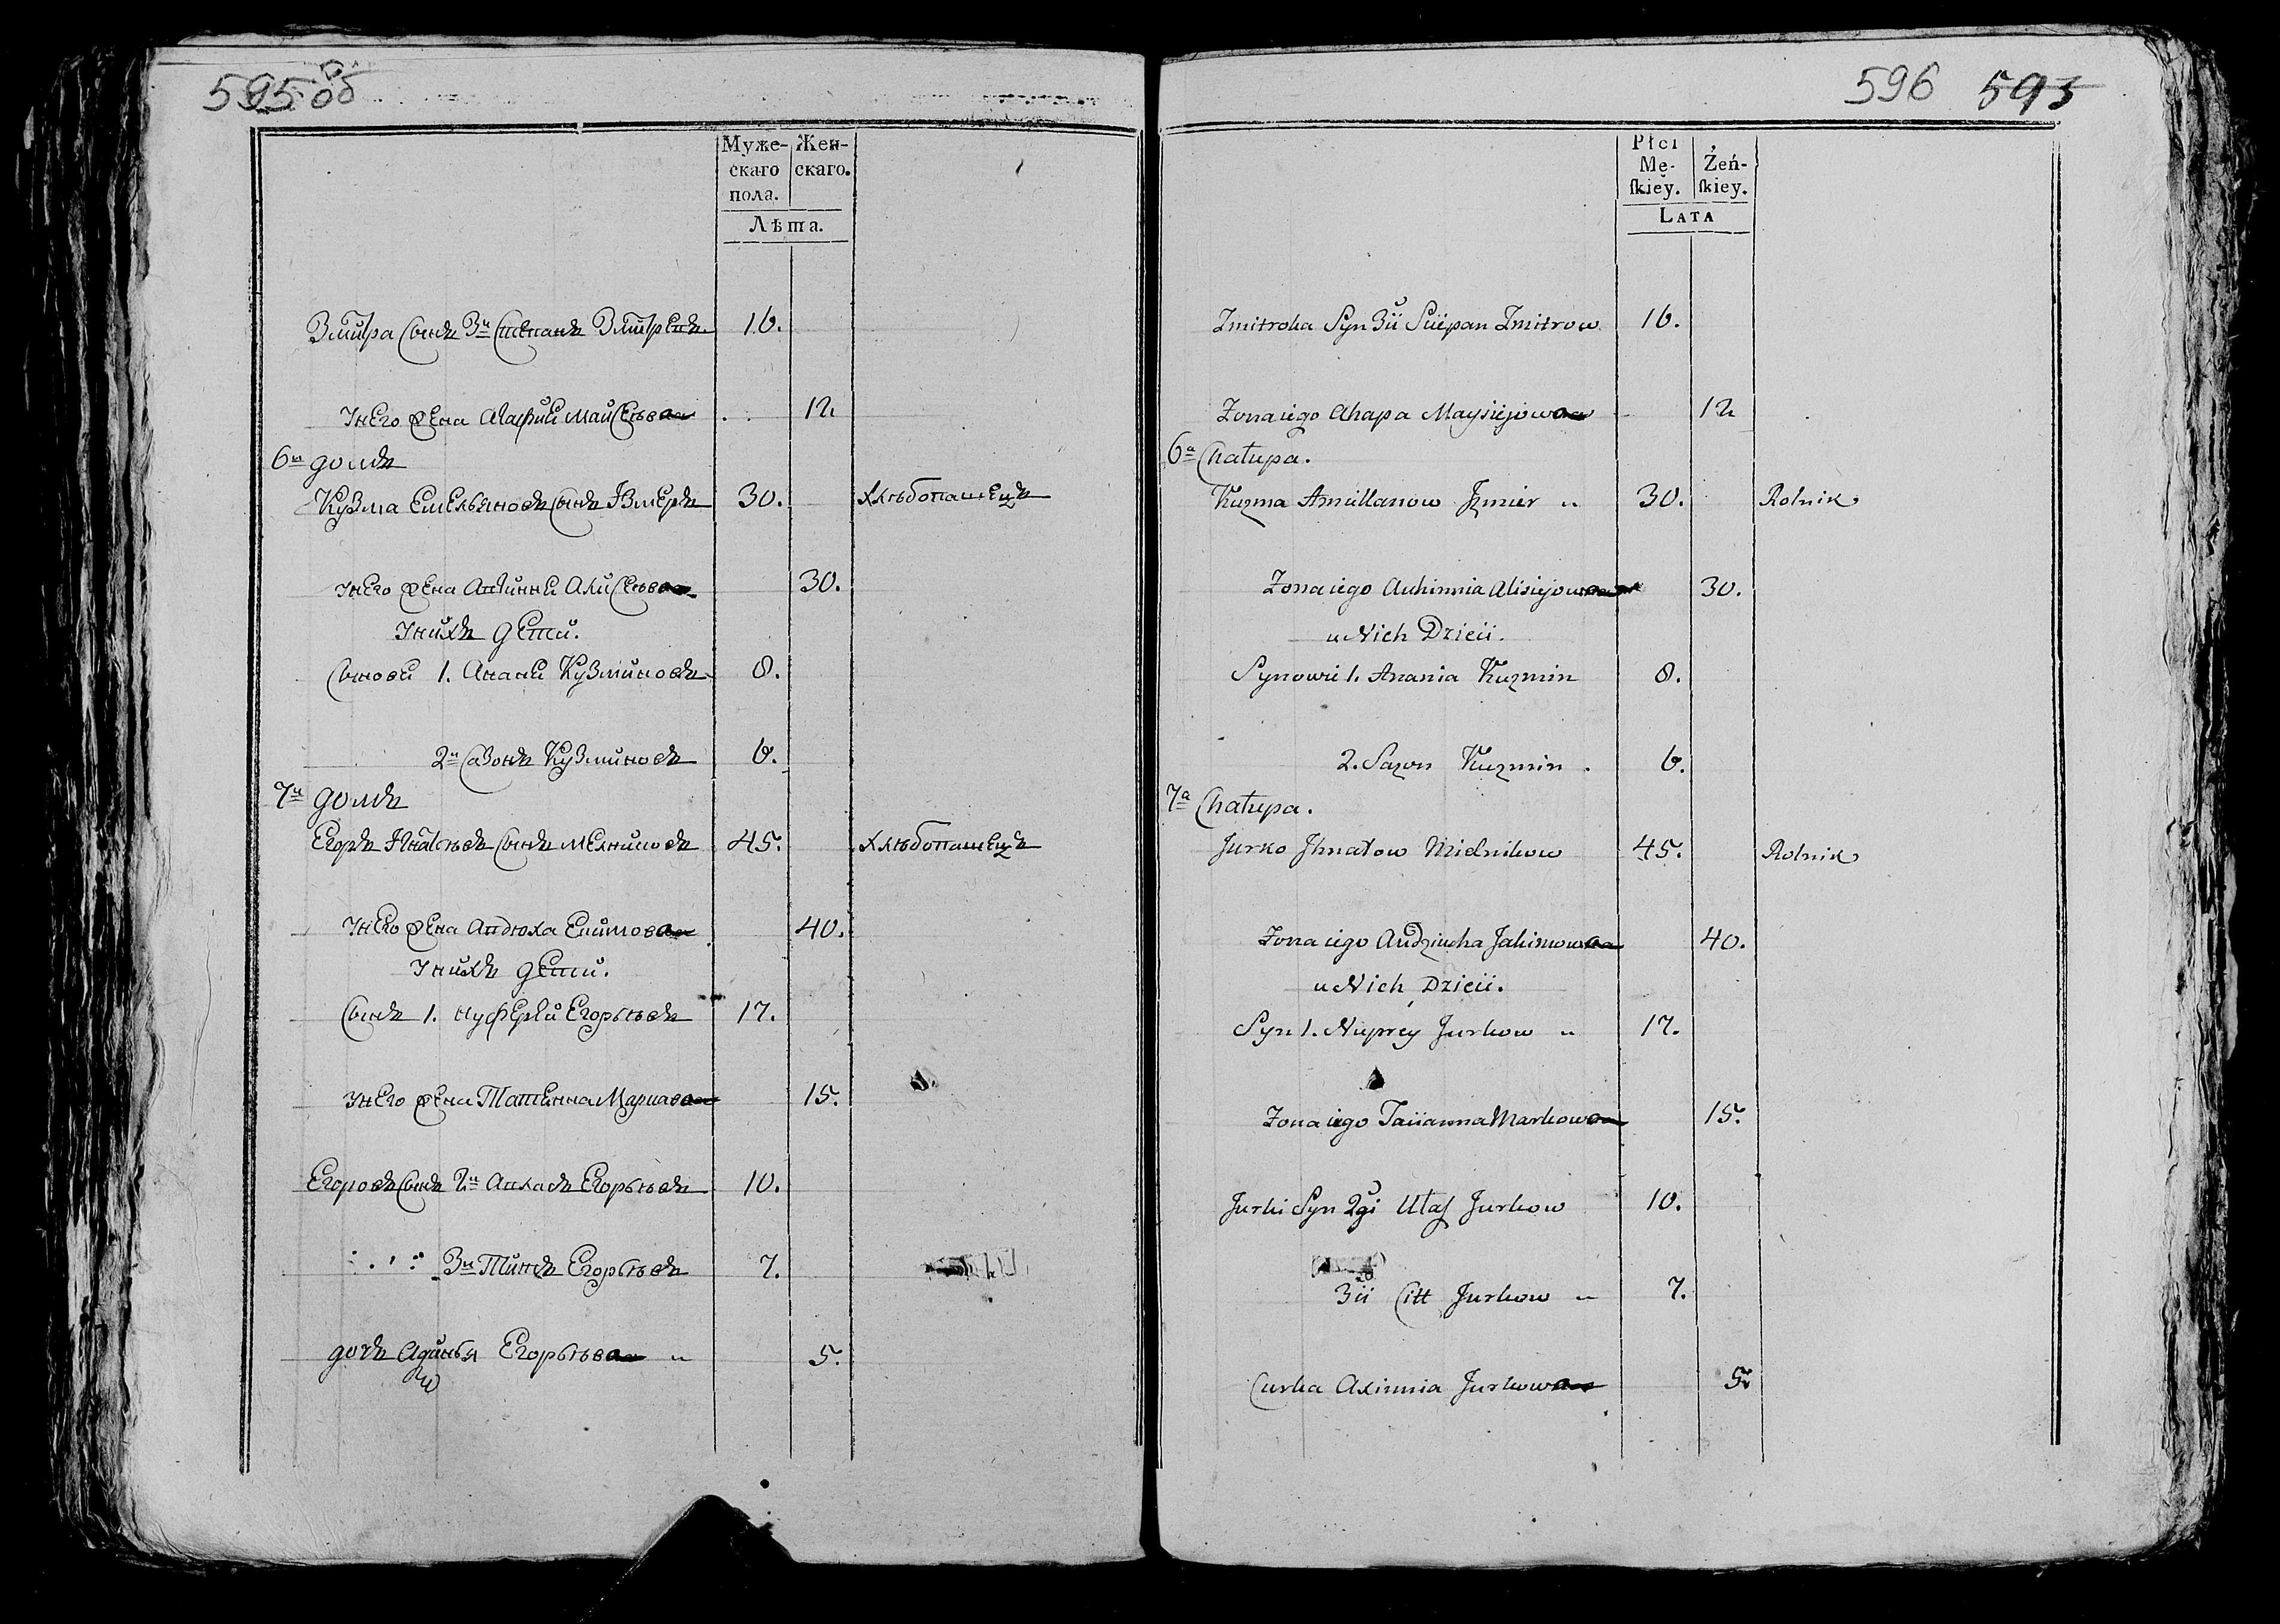 595 об
Муже-
скаго
пола.
Жен-
скаго.
Лѣта.
Змитра Сынъ 3й Степанъ Змитревъ 16.
у него жена Агафия Майсеева 12
6й домъ
Кузма Емельяновъ сынъ Ізмеръ 30. Хлѣбопашецъ
у него жена Авгиния Алисеева 30.
у нихъ дети.
Сынови 1. Анания Кузминовъ 8.
2й Сазонъ Кузминовъ 6.
7й домъ
Егоръ Ігнатьевъ Сынъ Мелниковъ 45. Хлѣбопашецъ
у него жена Авдюха Екимова 40.
у нихъ дети.
Сынъ 1. Нуферий Егорьевъ 17.
у него жена Татянна Маркава 15.
Егоровъ Сынъ 2й Егорьевъ 10.
3й Титъ Егорьевъ 7.
дочъ Егорьева 5.
596 595
Płci
Mę-
ſkiey.
Żeń-
ſkiey.
LATA
Zmitroka Syn 3ii Sciepan Zmitrow 16.
Zona iego Ahapa Maysiejowa 12
6a Chałupa.
Kuzma Amillanow Jzmier 30. Rolnik
Zona iego Auhinnia Alisiejowa 30.
u Nich Dzieci.
Synowie 1. Anania Kuzmin 8.
2. Sazon Kuzmin 6.
7a Chałupa.
Jurko Jhnatow Mielnikow 45. Rolnik
Zona iego Audziucha Jakimowa 40.
u Nich Dzieci.
Syn 1. Nuprey Jurkow 17.
Zona iego Tacianna Markowa 15.
Jurki Syn 2gi Ułas Jurkow 10.
3ii Citt Jurkow 7.
Curka Axinnia Jurkowa 5.